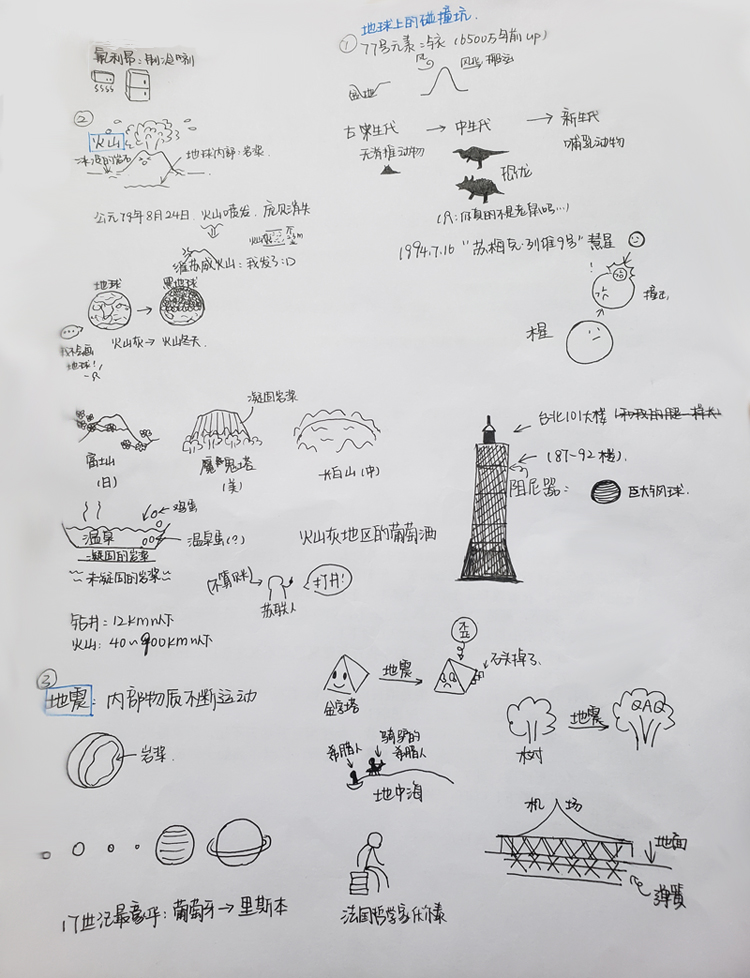 地球上的碰撞坑.
① 77号元素:铱 (6500万年前 up)
氟利昂:制冷剂
风
风华 搬运
盆地
古生代 → 中生代 → 新生代
无脊椎动物
哺乳动物
恐龙
(R:你真的不是老鼠吗…)
1994.7.16 “苏梅克·列维9号” 彗星
!
撞击
木星
②
火山
地球内部:岩浆.
公元79年8月24日. 火山喷发. 庞贝消失
维苏威火山:我发了:D
地球
黑地球
火山灰→ 火山冬天.
我不会画
地球!
-R
凝固岩浆
富士山
(日)
魔鬼塔
(美)
长白山(中)
台北101大楼
(87~92楼).
阻尼器:
巨大钢球.
鸡蛋
温泉
温泉蛋(?)
凝固的岩浆
~~未凝固的岩浆~~
火山灰地区的葡萄酒
打井!
苏联人
钻井:12km以下
火山:40~900km以下
③
地震: 内部物质不断运动
岩浆
金字塔
地震
歪
石头掉了.
希腊人
骑驴的
希腊人
地中海
树
地震
QAQ
机场
地面
弹簧
17世纪最豪华:葡萄牙→里斯本
法国哲学家伏尔泰